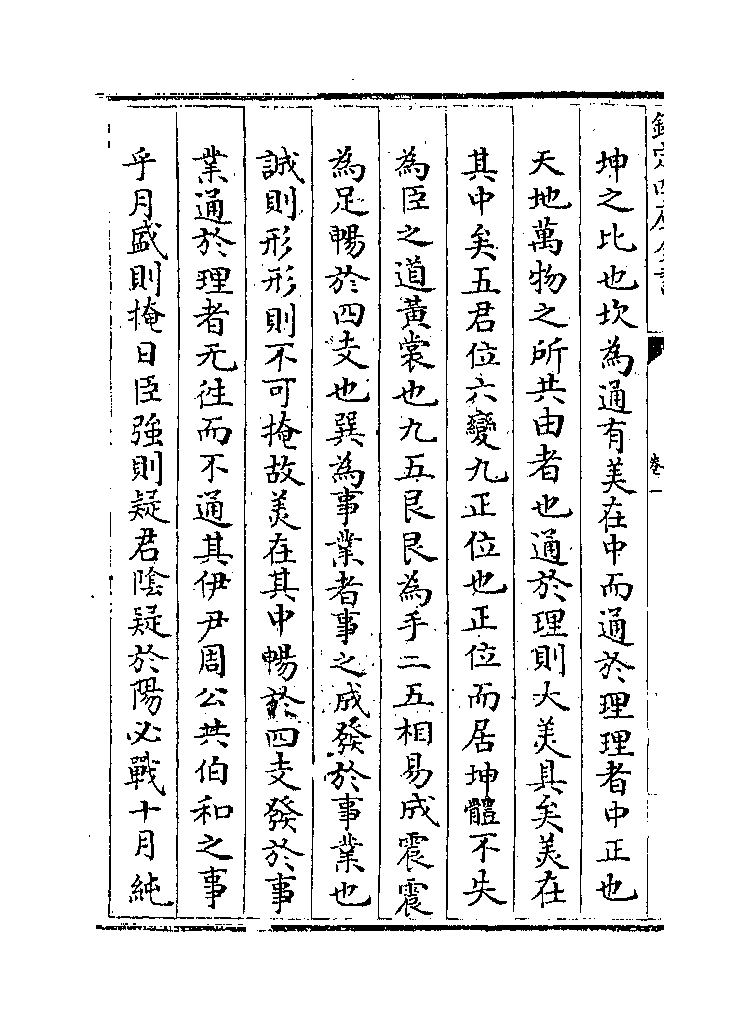 欽定四庫全書
卷一
坤之比也坎為通有美在中而通於理理者中正也
天地萬物之所共由者也通於理則大美具矣美在
其中矣五君位六變九正位也正位而居坤體不失
為臣之道黃裳也九五艮艮為手二五相易成震震
為足暢於四支也巽為事業者事之成發於事業也
誠則形形則不可掩故美在其中暢於四支發於事
業通於理者无往而不通其伊尹周公共伯和之事
乎月盛則掩日臣強則疑君陰疑於陽必戰十月純